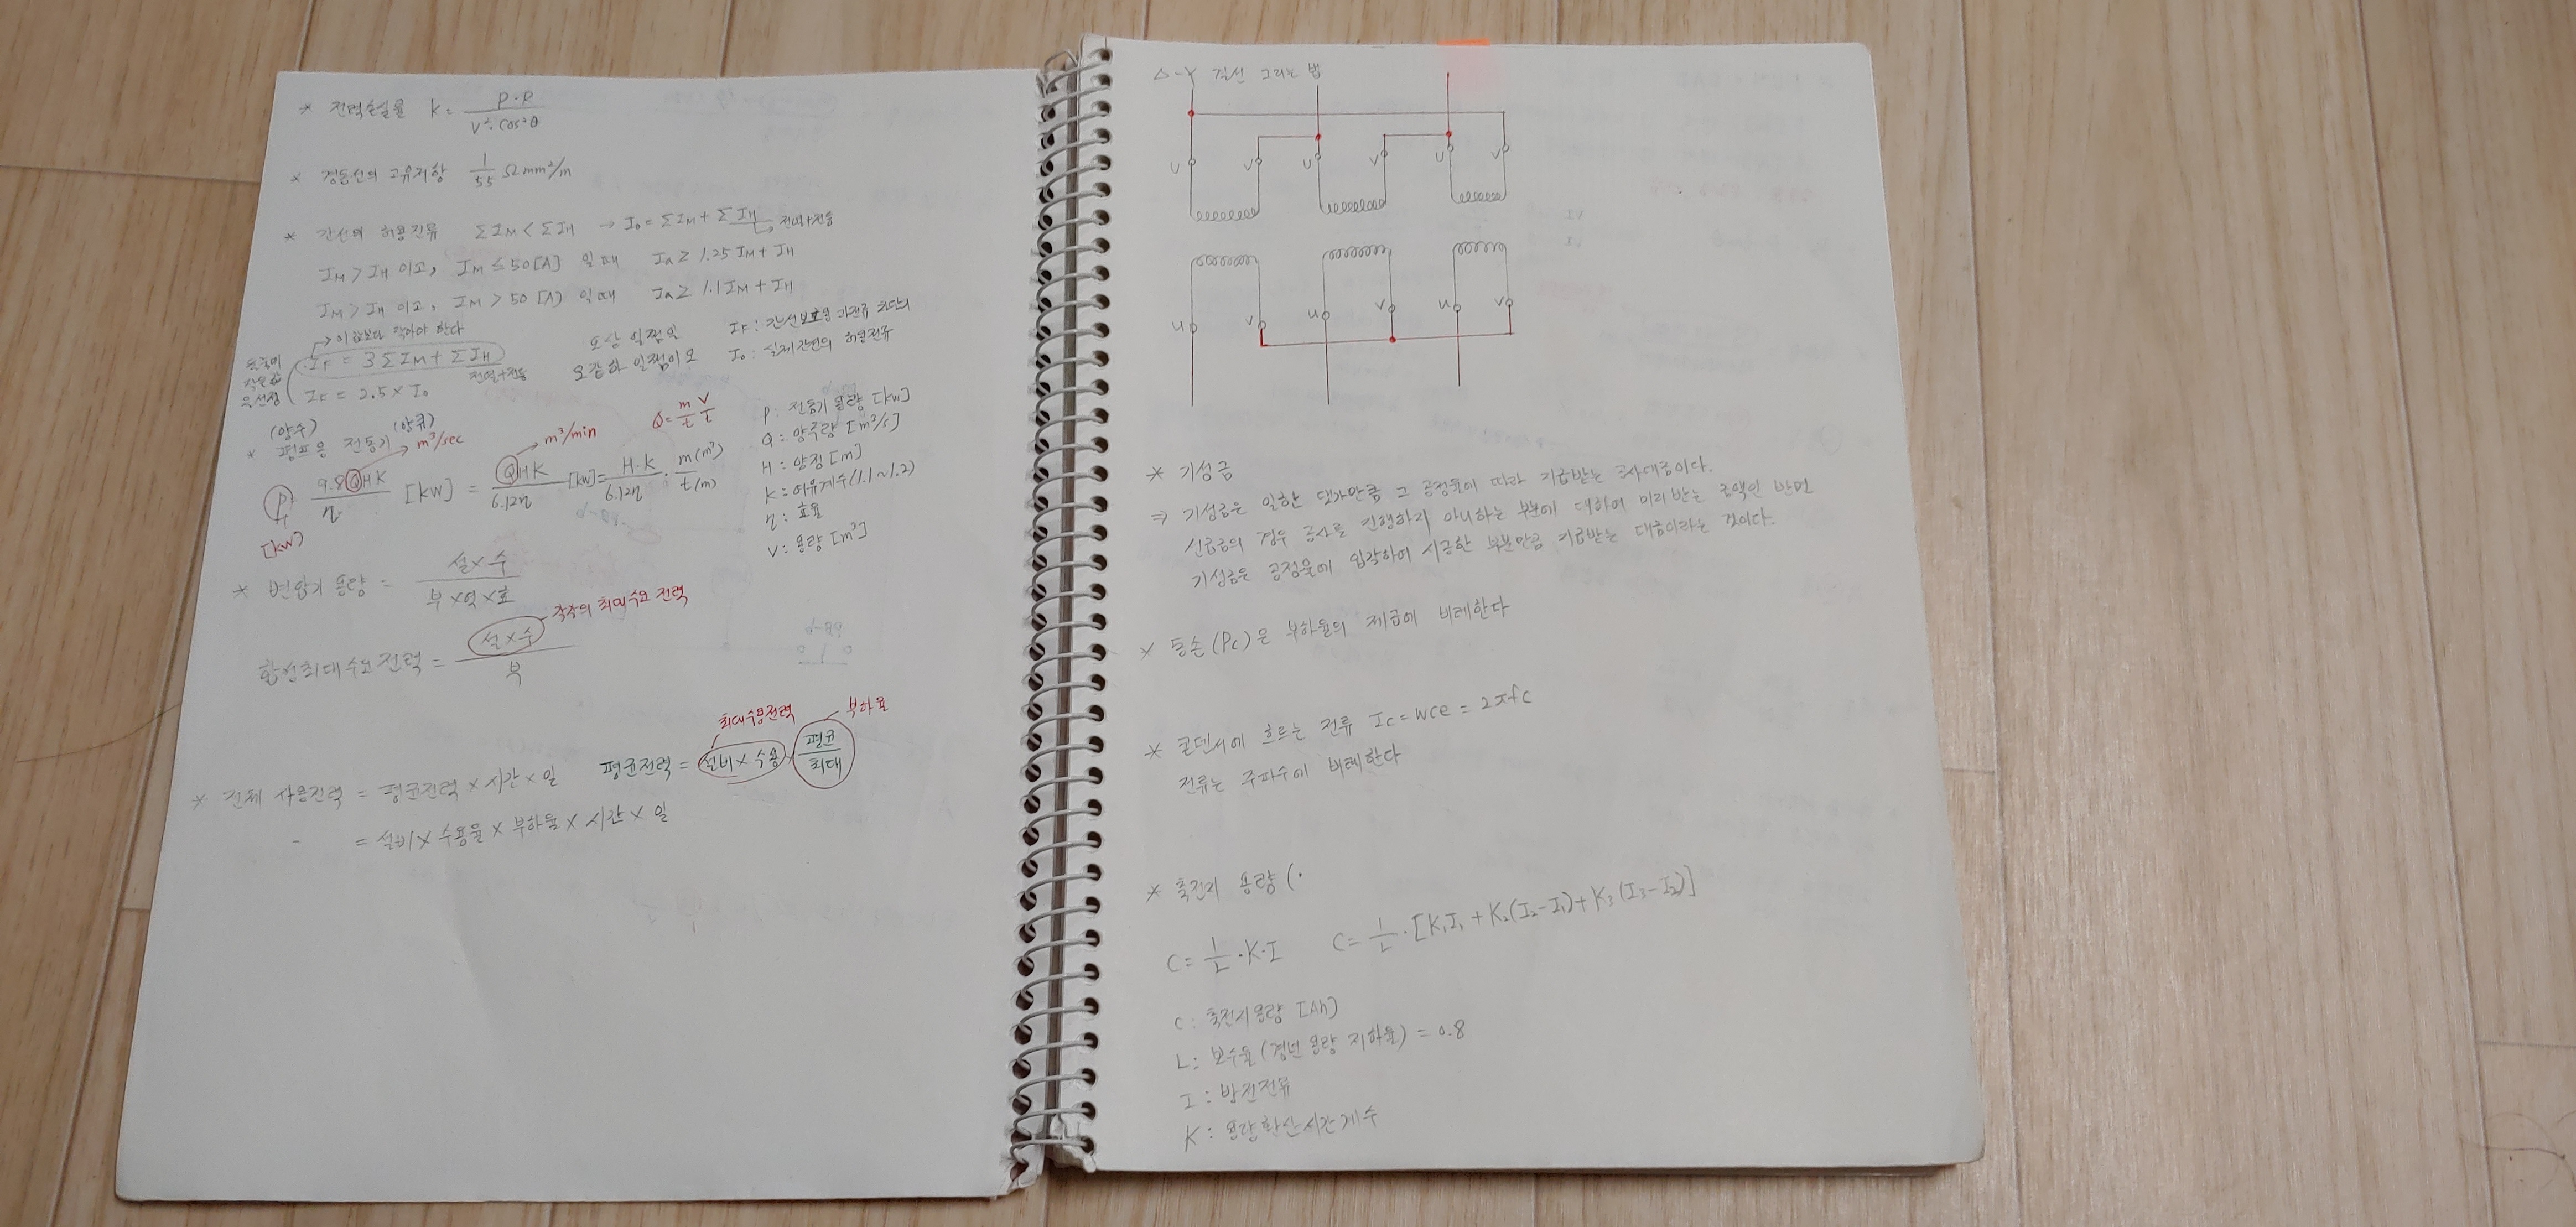 * 전력손실율 k = P·R / V²·cos²θ
* 경동선의 고유저항 1/55 Ωmm²/m
* 간선의 허용전류 ΣIM < ΣIH → Io = ΣIM + ΣIH → 전열+전등
IM > IH 이고, IM ≤ 50[A] 일때 Ia ≥ 1.25 IM + IH
IM > IH 이고, IM > 50[A] 일때 Ia ≥ 1.1 IM + IH
→ 이값보다 작아야 한다
IF = 3ΣIM + ΣIH
전열+전등
IF = 2.5 × Io
작은값
을선정
IF : 간선보호용 과전류 차단기
Io : 실제간선의 허용전류
(양수) (양큐)
* 펌프용 전동기 → m³/sec
→ m³/min
Q = m/t V/t
P = 9.8QHK / η [kW] = QHK / 6.12η [kW] = H·k / 6.12η · m(m³) / t(m)
[kW]
P : 전동기 용량 [kW]
Q : 양수량 [m³/s]
H : 양정 [m]
K : 여유계수(1.1~1.2)
η : 효율
V : 용량 [m³]
* 변압기 용량 = 설×수 / 부×역×효
각각의 최대수요 전력
합성최대수요전력 = 설×수 / 부
최대수용전력 부하율
평균전력 = 설비×수용 × 평균/최대
* 전체 사용전력 = 평균전력 × 시간 × 일
= 설비 × 수용율 × 부하율 × 시간 × 일
Δ-Y 결선 그리는 법
U V U V U V
U V U V U V
* 기성금
⇒ 기성금은 일한 댓가만큼 그 공정율에 따라 지급받는 공사대금이다.
선급금의 경우 공사를 진행하지 아니하는 부분에 대하여 미리 받는 금액인 반면
기성금은 공정율에 입각하여 시공한 부분만큼 지급받는 대금이라는 것이다.
* 동손(Pc)은 부하율의 제곱에 비례한다
* 콘덴서에 흐르는 전류 Ic = wce = 2πfc
전류는 주파수에 비례한다
* 축전지 용량 (·
C = 1/L · K·I C = 1/L · [K₁I₁ + K₂(I₂-I₁) + K₃(I₃-I₂)]
C : 축전지용량 [Ah]
L : 보수율 (경년 용량 저하율) = 0.8
I : 방전전류
K : 용량환산시간계수